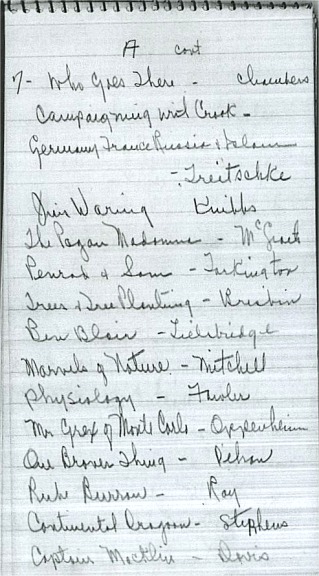 A cont
7- Who Goes There - Chambers
Campaigning with Crook -
Germany France Russia & Islam
- Treitschke
Jim Waring Knibbs
The Pagan Madonna - McGrath
Penrod & Sam - Tarkington
Trees & Tree Planting - Brisbin
Ben Blair - Lillibridge
Marvels of Nature - Mitchell
Physiology - Fowler
Mr Grex of Monte Carlo - Oppenheim
One Brown Thing - Pelton
Rube Burrow - Ray
Continental Dragoon - Stephens
Captain Macklin - Davis